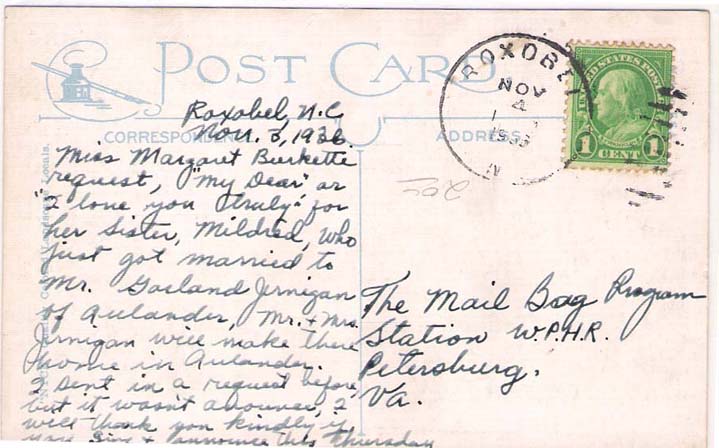 POST CARD
ROXOBEL
NOV
4
N
UNITED STATES POSTAGE
1 CENT 1
CORRESPONDENCE
ADDRESS
Roxobel, N.C.
Nov. 3, 1936
Miss Margaret Burkette
request, "My Dear" or
"I love you truly" for
her sister, Mildred, who
just got married to
Mr. Garland Jernigan
of Aulander, Mr. + Mrs.
Jernigan will make there
home in Aulander.
I sent in a request before
but it wasn't anounce, I
will thank you kindly if
you sing + announce this Thursday
The Mail Bag Program
Station W.P.H.R.
Petersburg,
Va.